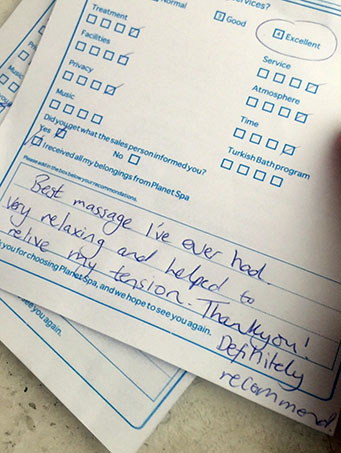 Normal
services?
3 Good
4 Excellent
Treatment
Service
Facilities
Atmosphere
Privacy
Time
Music
Turkish Bath program
Did you get what the sales person informed you?
Yes
No
I received all my belongings from Planet Spa
Please add in the box below your recommendations.
Best massage I've ever had.
Very relaxing and helped to
relive my tension. Thankyou!
you for choosing Planet Spa, and we hope to see you again.
Definitely
recommend.
Music
see you again.